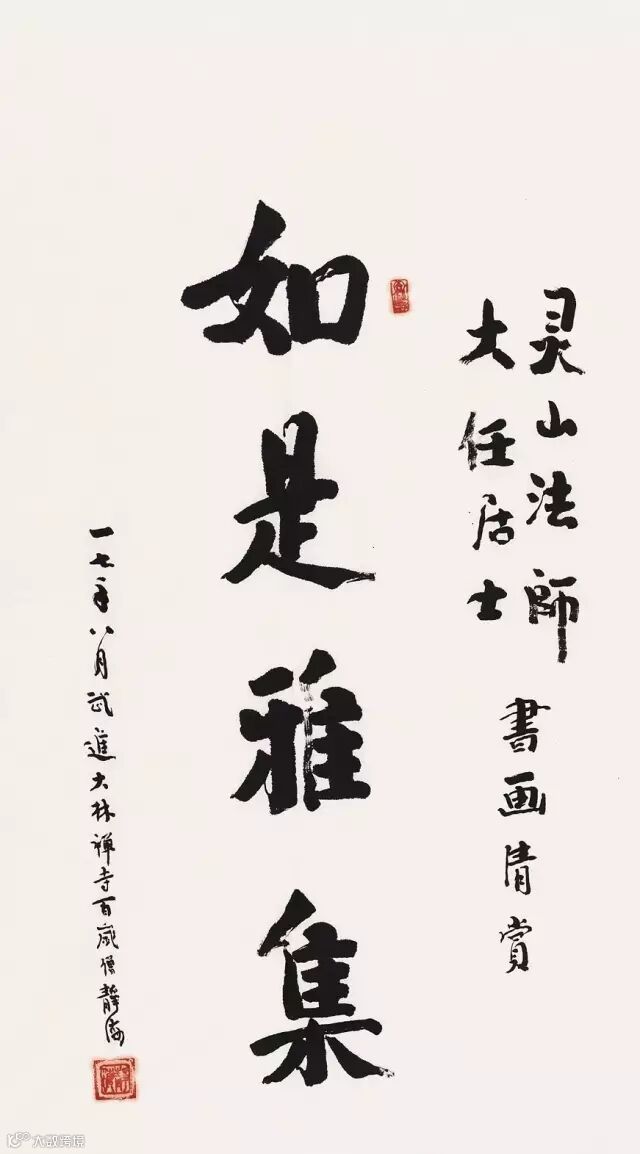 灵山法师
大任居士
書画清赏
如是雅集
一七年八月武進大林禅寺百歲僧静海
大数跨境